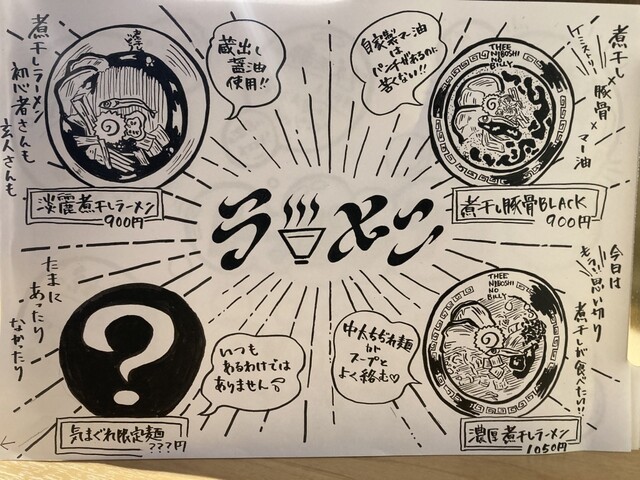 煮干しラーメン
初心者さんも
玄人さんも
蔵出し
醤油
使用!!
淡麗煮干しラーメン
900円
自家製マー油
は
パンチがあるのに
苦くない!!
THEE
NIBOSHI
NO
BILLY
煮干し×豚骨×マー油
煮干し豚骨BLACK
900円
ラーメン
たまに
あったり
なかったり
?
いつも
あるわけでは
ありません
気まぐれ限定麺
???円
中太ちぢれ麺
が
スープと
よく絡む♡
THEE
NIBOSHI
NO
BILLY
今日は
もう!!思い切り
煮干しが食べたい!!
濃厚煮干しラーメン
1050円